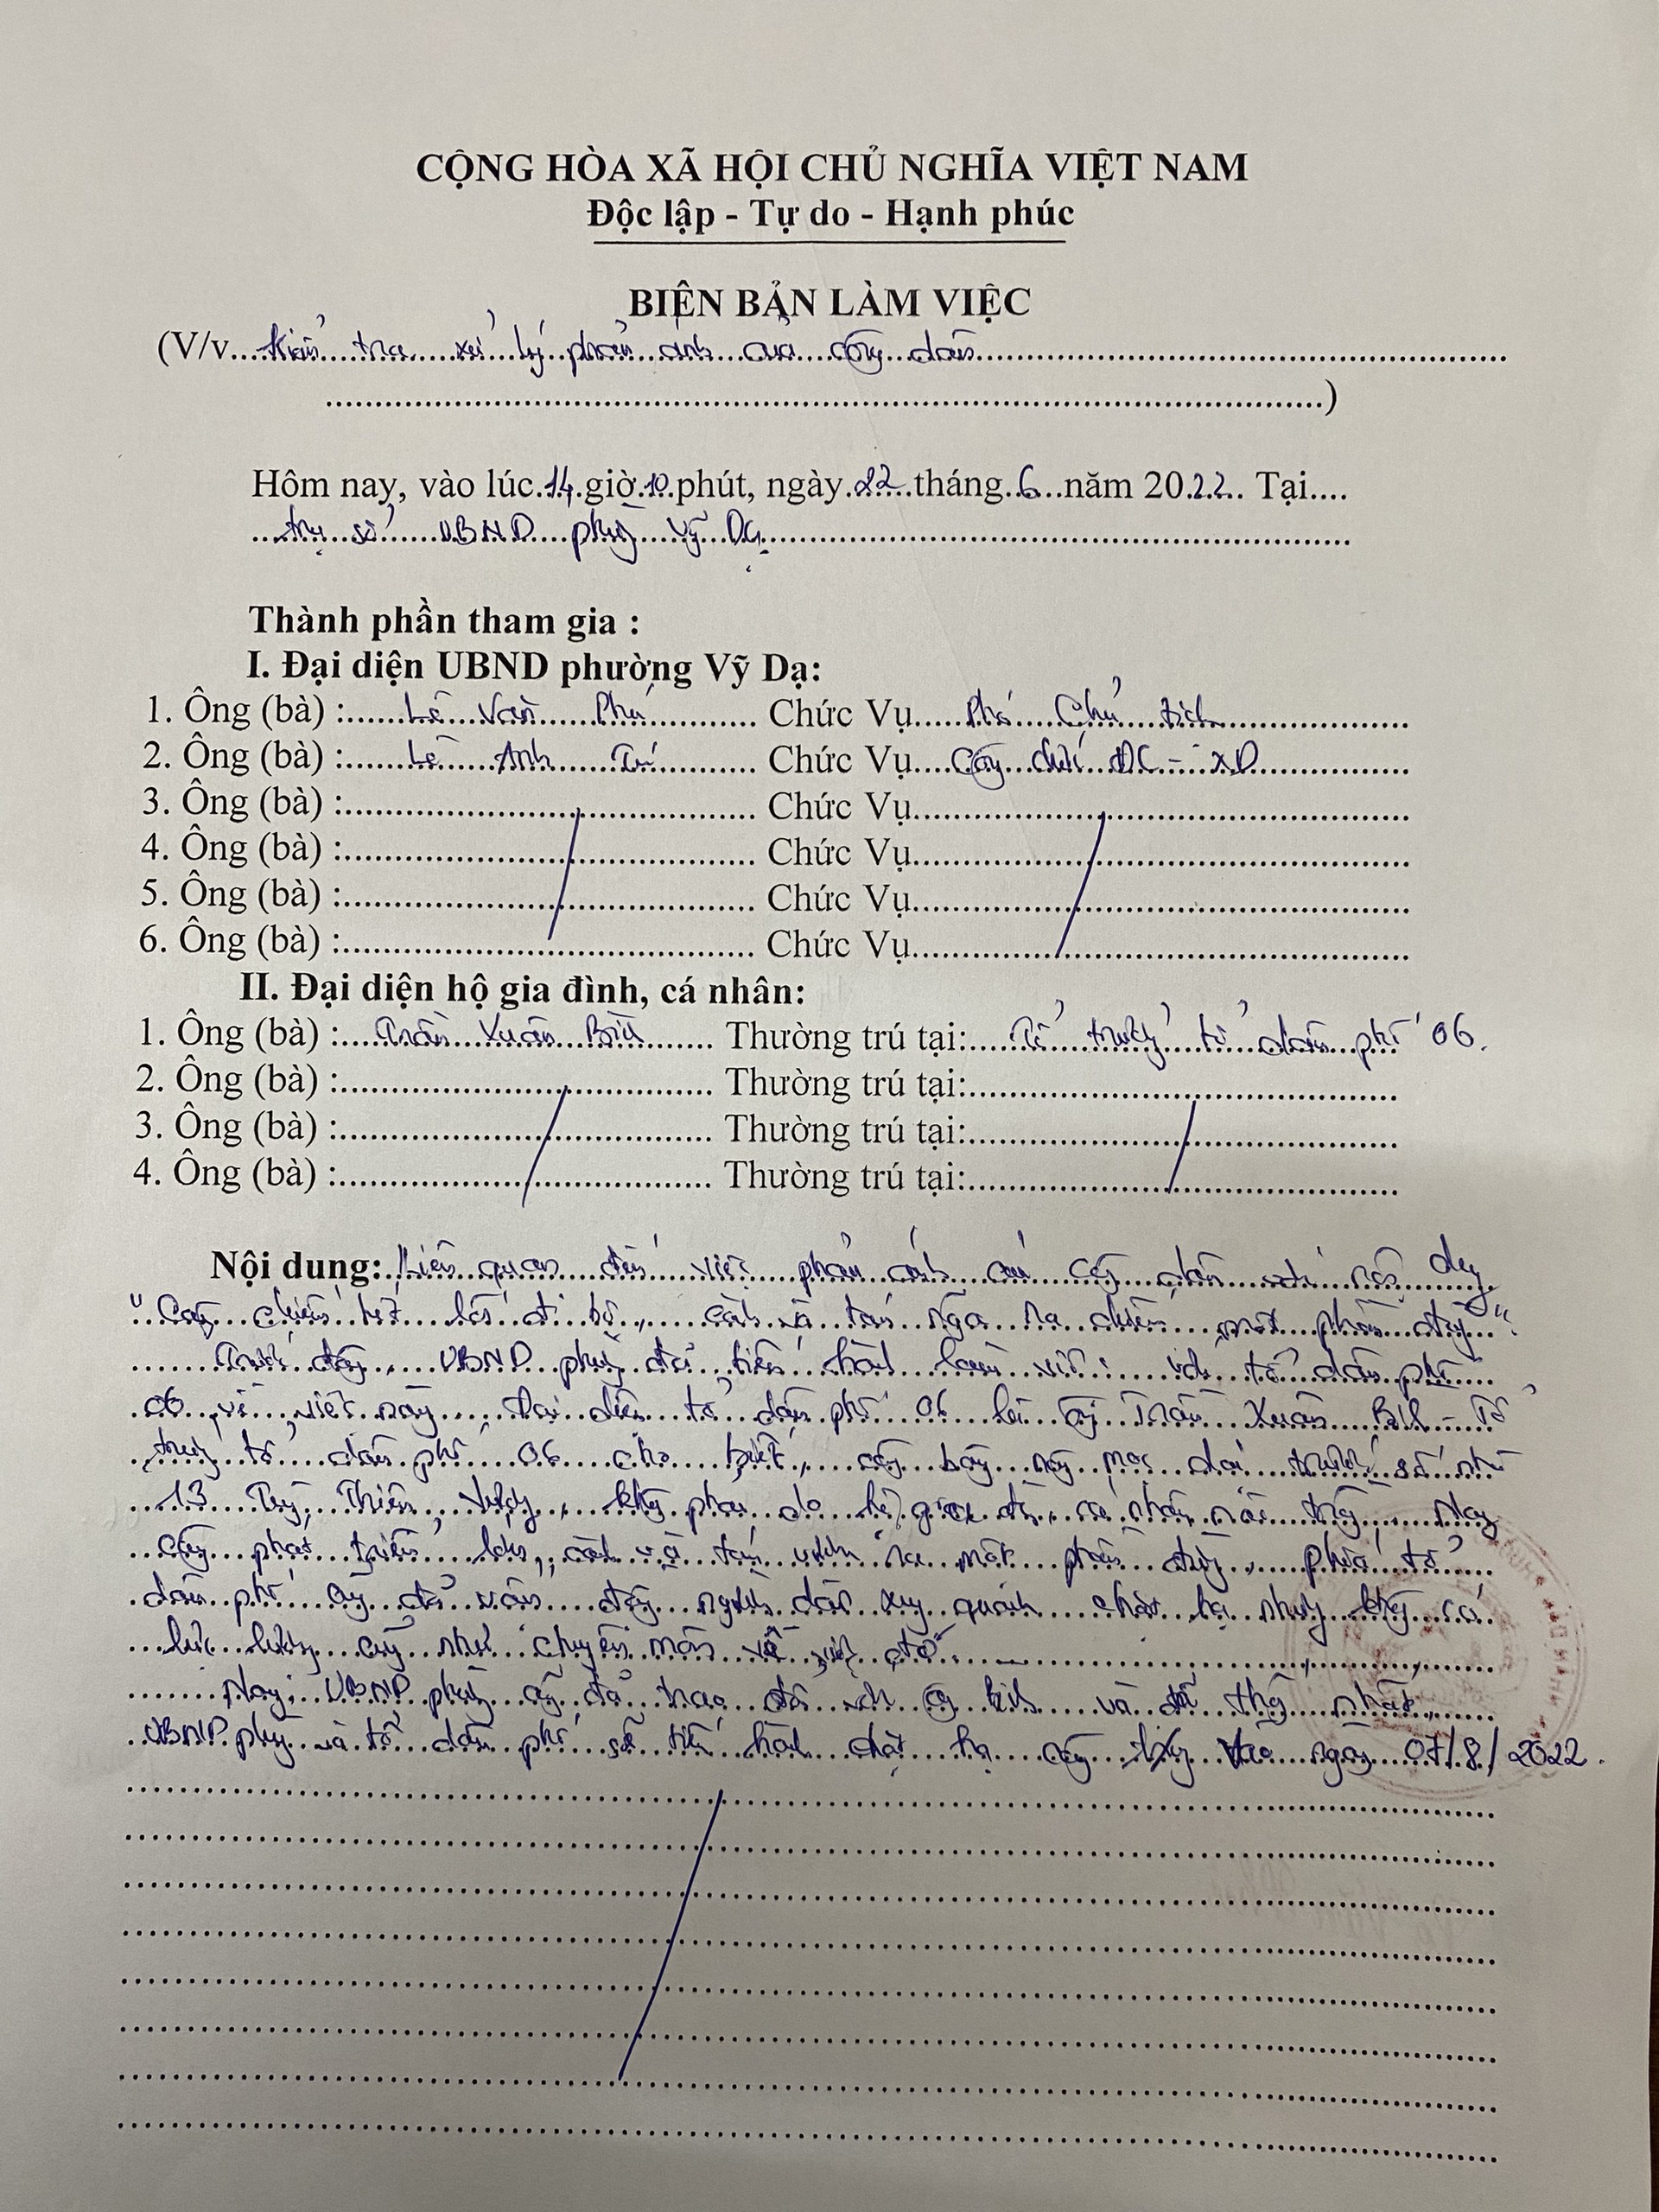 CỘNG HÒA XÃ HỘI CHỦ NGHĨA VIỆT NAM
Độc lập - Tự do - Hạnh phúc
BIÊN BẢN LÀM VIỆC
(V/v... kiểm tra xử lý phản ánh của công dân...
...)
Hôm nay, vào lúc 14 giờ 10 phút, ngày 22 tháng 6 năm 2022. Tại....
trụ sở UBND phường Vỹ Dạ.
Thành phần tham gia :
I. Đại diện UBND phường Vỹ Dạ:
1. Ông (bà) : Lê Văn Phú Chức Vụ Phó Chủ tịch
2. Ông (bà) : Lê Anh Tú Chức Vụ Công chức ĐC - XD
3. Ông (bà) : Chức Vụ
4. Ông (bà) : Chức Vụ
5. Ông (bà) : Chức Vụ
6. Ông (bà) : Chức Vụ
II. Đại diện hộ gia đình, cá nhân:
1. Ông (bà) : Trần Xuân Thường trú tại: Tổ trưởng tổ dân phố 06.
2. Ông (bà) : Thường trú tại:
3. Ông (bà) : Thường trú tại:
4. Ông (bà) : Thường trú tại:
Nội dung: Liên quan đến việc phản ánh của công dân với nội dung
"Cây chiếm hết lối đi bộ, cành và tán ngã ra chiếm một phần đường".
Trước đây, UBND phường đã tiến hành làm việc với tổ dân phố
06 về việc này. Đại diện tổ dân phố 06 là ông Trần Xuân - Tổ
trưởng tổ dân phố 06 cho biết, cây bông này mọc dại trước số nhà
13 Tùng Thiện Vương, không phải do hộ gia đình, cá nhân nào trồng. Nay
cây phát triển lớn, cành và tán vươn ra một phần đường, phía tổ
dân phố cũng đã vận động người dân xung quanh chặt hạ nhưng không có
lực lượng cũng như chuyên môn về việc đó.
Nay, UBND phường cũng đã trao đổi với ông và đã thống nhất,
UBND phường và tổ dân phố sẽ tiến hành chặt hạ cây vào ngày 07/8/2022.